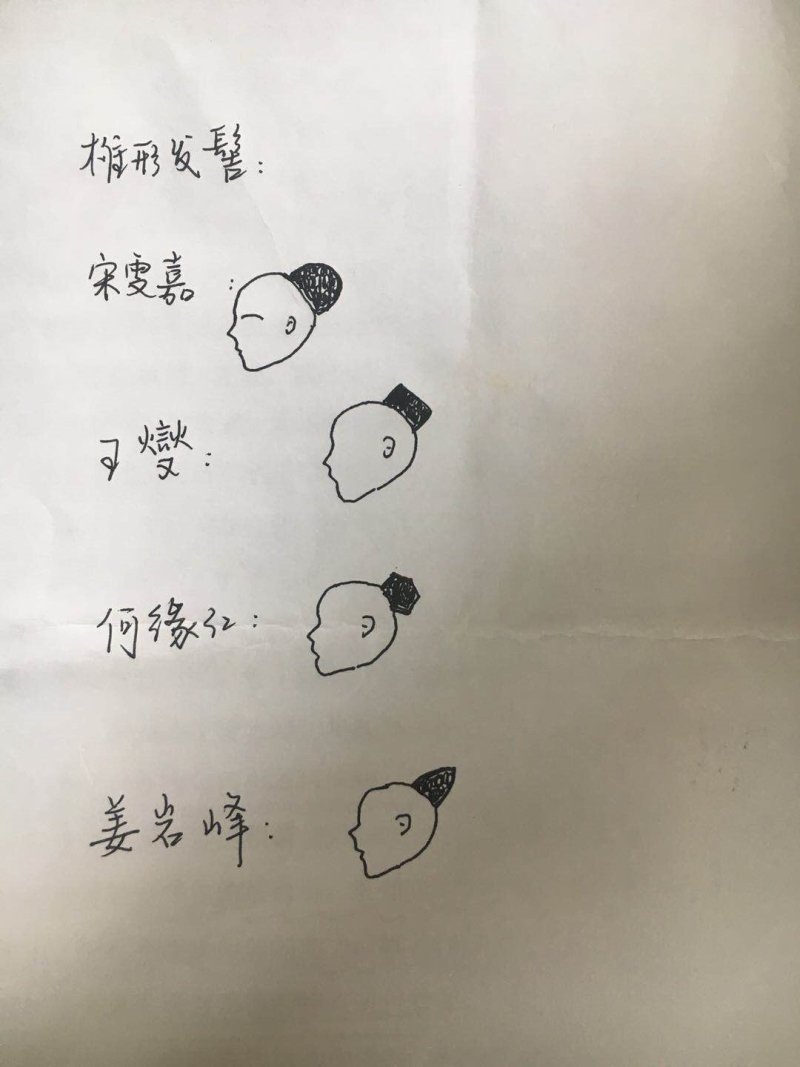 椎形发髻:
宋雯嘉:
王燮:
何缘红:
姜岩峰: